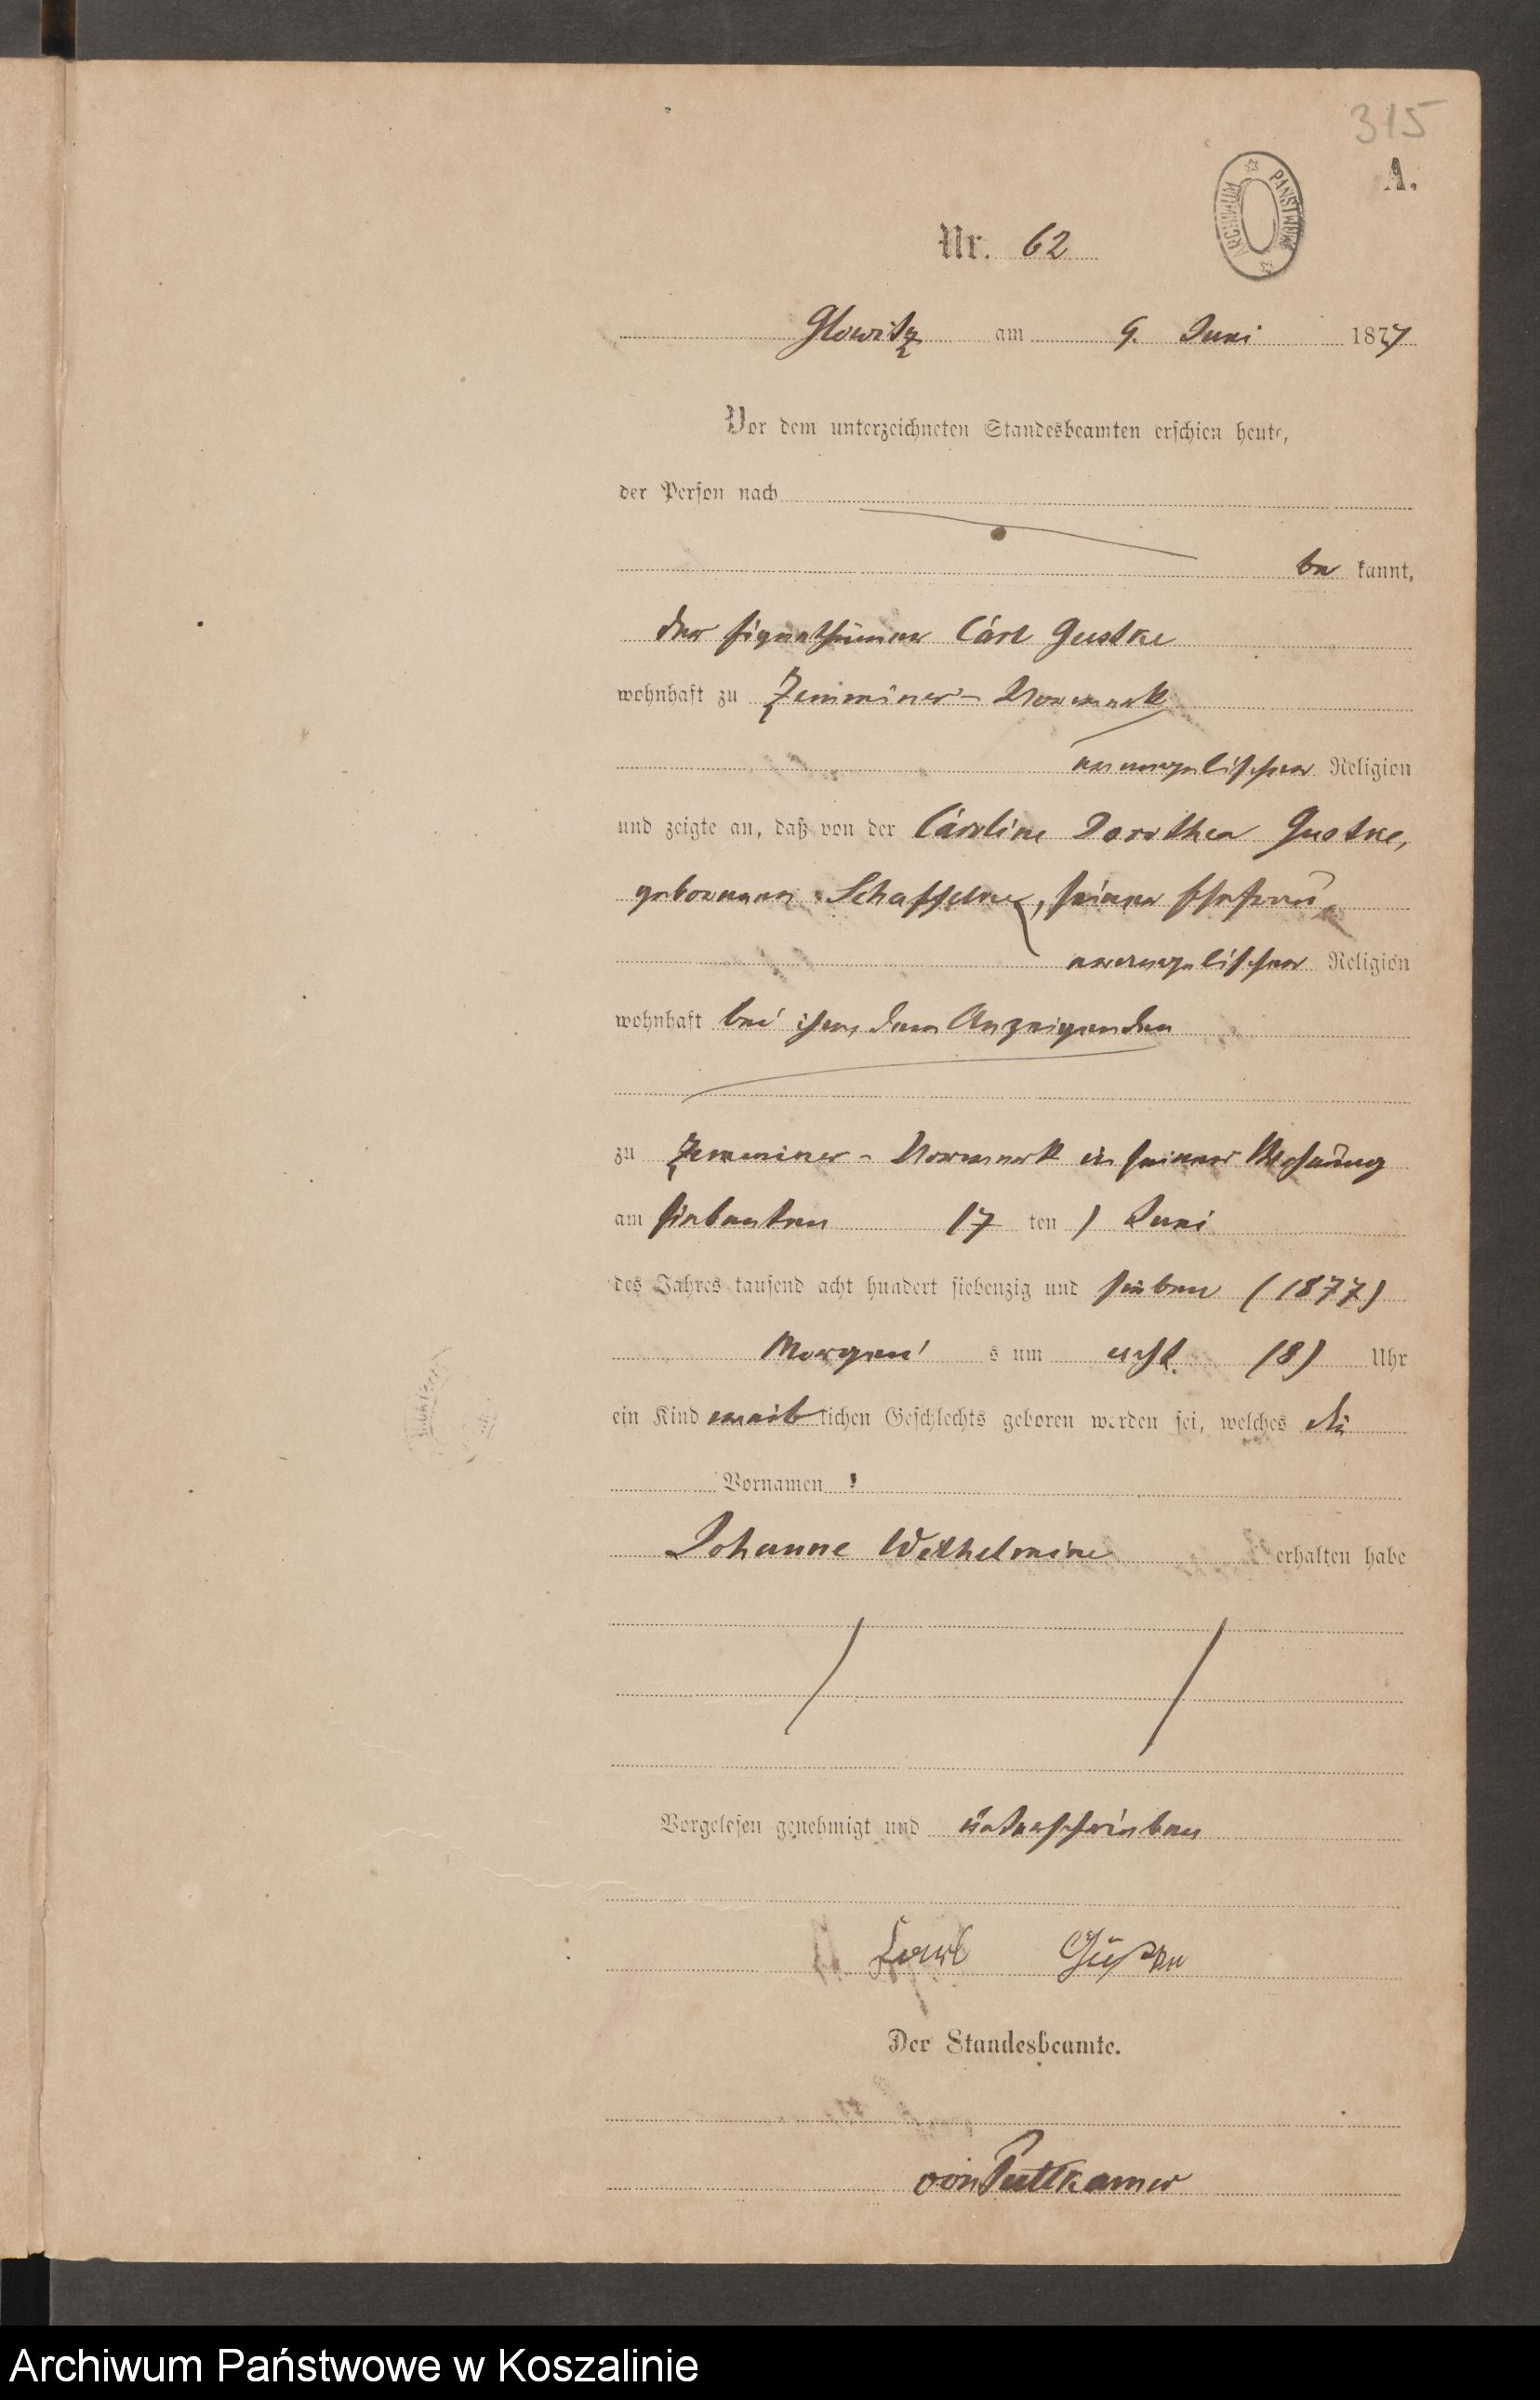 315
A.
ARCHIWUM PAŃSTWOWE
Nr. 62
Glowitz am 9. Juni 1877
Vor dem unterzeichneten Standesbeamten erschien heute,
der Person nach
be kannt,
der Eigenthümer Carl Gustke
wohnhaft zu Zemminer-Vorwerk
evangelischer Religion
und zeigte an, daß von der Caroline Dorothea Gustke,
geborenen, seiner Ehefrau
evangelischer Religion
wohnhaft bei ihm, dem Anzeigenden
zu Zemminer-Vorwerk in seiner Wohnung
am siebenten (7 ten ) Juni
des Jahres tausend acht hundert siebenzig und sieben (1877)
Morgen s um acht (8) Uhr
ein Kind weib lichen Geschlechts geboren worden sei, welches die
Vornamen :
Johanne Wilhelmine erhalten habe
Vorgelesen genehmigt und unterschrieben
Carl Gustke
Der Standesbeamte.
von Puttkamer
Archiwum Państwowe w Koszalinie